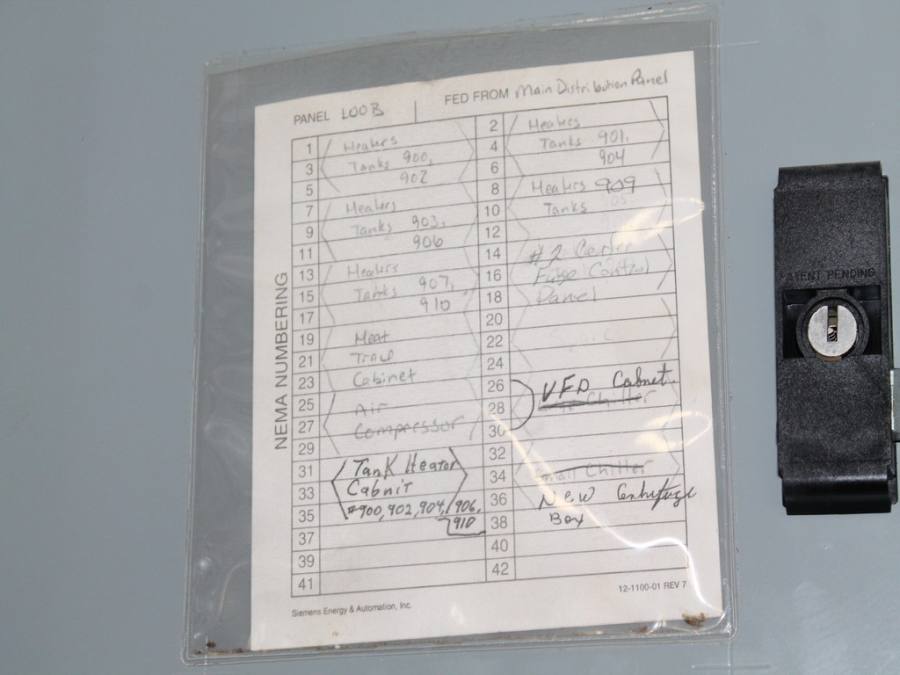 PANEL LOOB FED FROM Main Distribution Panel
NEMA NUMBERING
1 Heaters 2 Heaters
3 Tanks 900, 4 Tanks 901,
5 902 6 904
7 Heaters 8 Heaters 909
9 Tanks 903, 10 Tanks
11 906 12
13 Heaters 14 #2 Center
15 Tanks 907, 16 Fuge Control
17 910 18 Panel
19 Heat 20
21 Trace 22
23 Cabinet 24
25 Air 26 VFD Cabnet
27 Compressor 28 Chiller
29 30
31 Tank Heater 32
33 Cabnit 34 Small Chiller
35 #900, 902, 904, 906, 36 New Centrifuge
910
37 38 Box
39 40
41 42
12-1100-01 REV 7
Siemens Energy & Automation, Inc.
PATENT PENDING